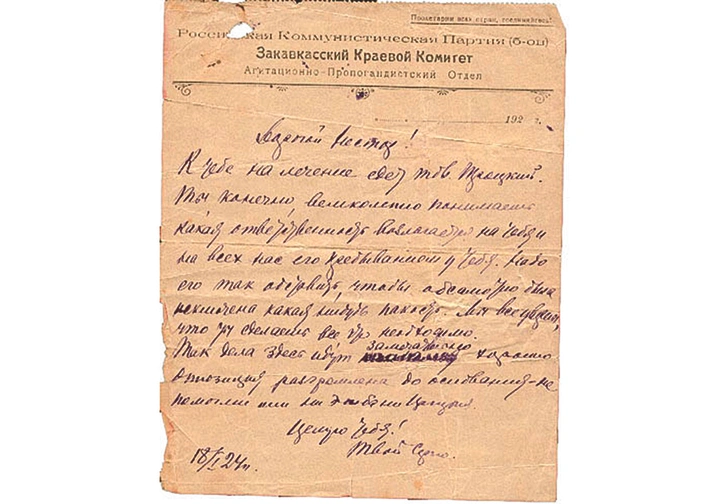 Пролетарии всех стран, соединяйтесь!
Российская Коммунистическая Партия (б-ов)
Закавкасский Краевой Комитет
Агитационно-Пропогандистский Отдел
192 г.
Дорогой Нестор!
К тебе на лечение едет тов. Троцкий.
Ты конечно великолепно понимаешь
какая ответственность возлагается на тебя и
на всех нас его пребыванием у тебя. Надо
его так обставить, чтобы абсолютно была
исключена какая нибудь пакость. Мы все уверены,
что ты сделаешь все что необходимо.
замечательно
Так дела здесь идут хорошо
Оппозиция разгромлена до основания - не
помогли им ни
Целую тебя!
Твой Серго.
18/I 24 г.